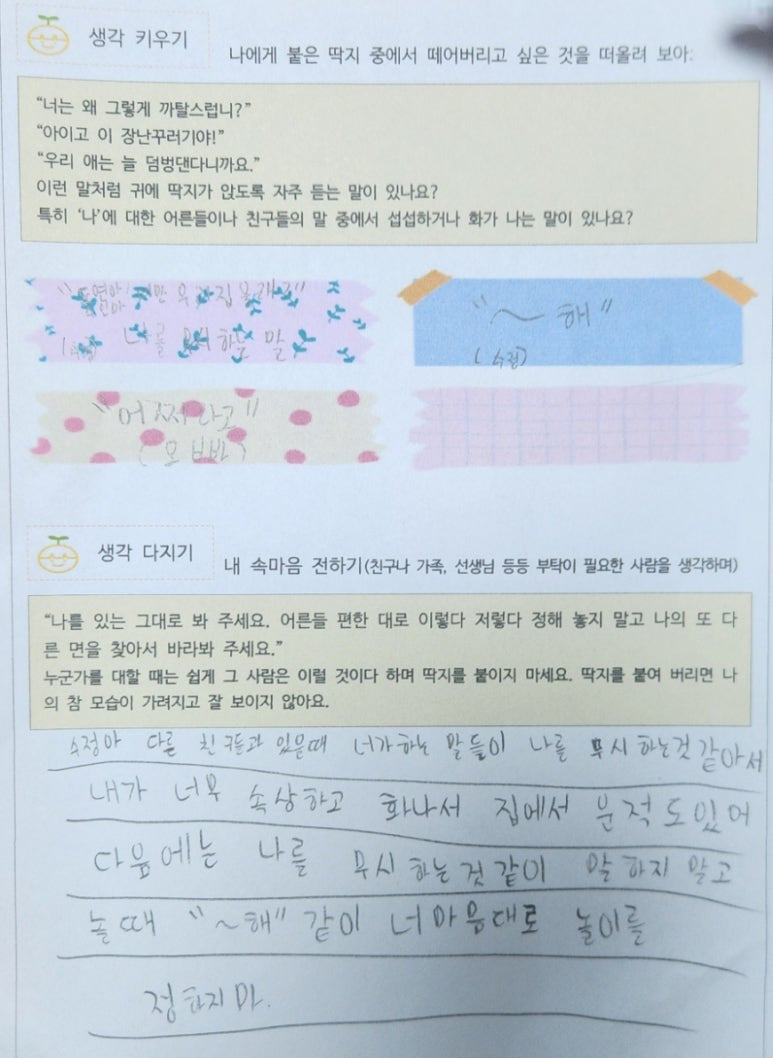 생각 키우기
나에게 붙은 딱지 중에서 떼어버리고 싶은 것을 떠올려 보아.
“너는 왜 그렇게 까탈스럽니?”
“아이고 이 장난꾸러기야!”
“우리 애는 늘 덤벙댄다니까요.”
이런 말처럼 귀에 딱지가 앉도록 자주 듣는 말이 있나요?
특히 ‘나’에 대한 어른들이나 친구들의 말 중에서 섭섭하거나 화가 나는 말이 있나요?
우리집 올래?”
나를 무시하는 말
“~ 해”
(수정)
“어쩌라고”
생각 다지기
내 속마음 전하기(친구나 가족, 선생님 등등 부탁이 필요한 사람을 생각하며)
“나를 있는 그대로 봐 주세요. 어른들 편한 대로 이렇다 저렇다 정해 놓지 말고 나의 또 다
른 면을 찾아서 바라봐 주세요.”
누군가를 대할 때는 쉽게 그 사람은 이럴 것이다 하며 딱지를 붙이지 마세요. 딱지를 붙여 버리면 나
의 참 모습이 가려지고 잘 보이지 않아요.
수정아 다른 친구들과 있을때 너가하는 말들이 나를 무시하는것 같아서
내가 너무 속상하고 화나서 집에서 운적도있어
다음에는 나를 무시하는것같이 말하지 말고
놀때 “~해” 같이 너마음대로 놀이를
정하지마.